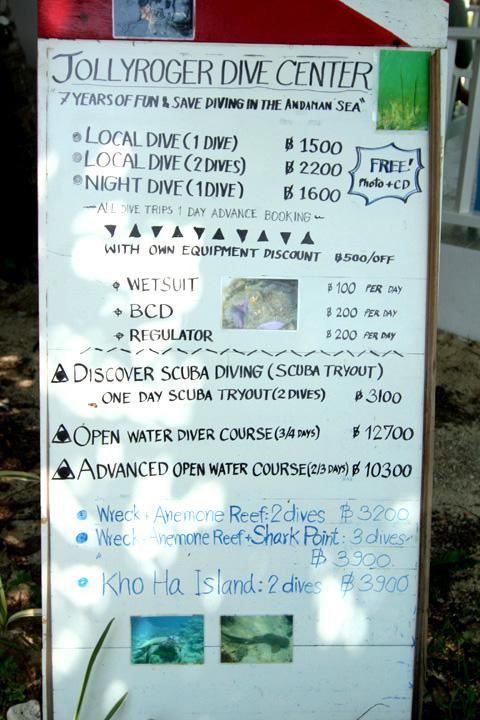 JOLLYROGER DIVE CENTER
"7 YEARS OF FUN & SAVE DIVING IN THE ANDAMAN SEA"
LOCAL DIVE (1 DIVE) ฿ 1500
LOCAL DIVE (2 DIVES) ฿ 2200
NIGHT DIVE (1 DIVE) ฿ 1600
FREE!
Photo + CD
~ ALL DIVE TRIPS 1 DAY ADVANCE BOOKING ~
WITH OWN EQUIPMENT DISCOUNT ฿500/OFF
WETSUIT ฿ 100 PER DAY
BCD ฿ 200 PER DAY
REGULATOR ฿ 200 PER DAY
DISCOVER SCUBA DIVING (SCUBA TRYOUT)
ONE DAY SCUBA TRYOUT (2 DIVES) ฿ 3100
OPEN WATER DIVER COURSE (3/4 DAYS) ฿ 12700
ADVANCED OPEN WATER COURSE (2/3 DAYS) ฿ 10300
Wreck + Anemone Reef: 2 dives ฿ 3200
Wreck + Anemone Reef + Shark Point: 3 dives
฿ 3900
Kho Ha Island: 2 dives ฿ 3900